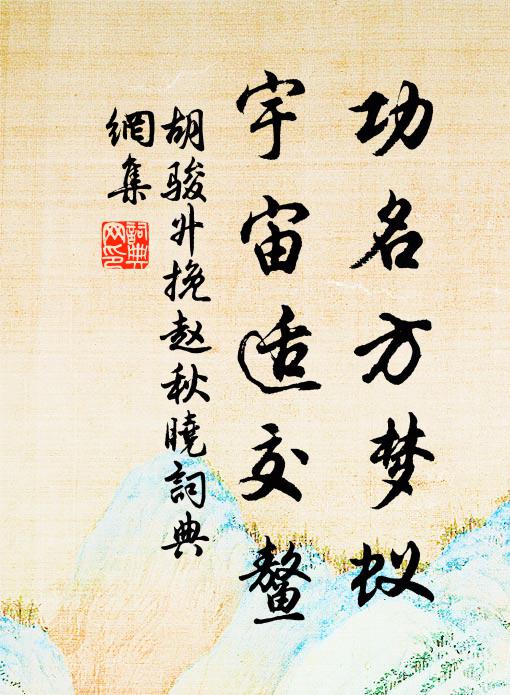 功名方梦蚁
宇宙适交鳌
胡骏升挽赵秋晓词典
網集
詞典
网印